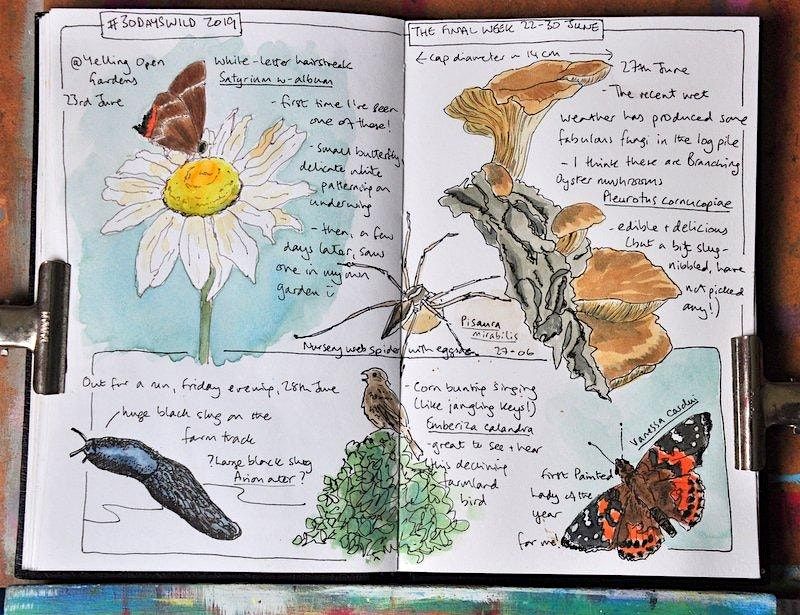 #30DAYSWILD 2019
@Yelling Open
Gardens
23rd June
White-letter hairstreak
Satyrium w-album
- first time I've seen
one of these!
- small butterfly,
delicate white
patterning on
underwing
- then, a few
days later, saw
one in my own
garden
Nursery web spider with eggsac
Pisaura
mirabilis
27-06
Out for a run, Friday evening, 28th June
huge black slug on the
farm track
? Large black slug
Arion ater?
THE FINAL WEEK 22-30 JUNE
← cap diameter ~ 14cm →
27th June
- The recent wet
weather has produced some
fabulous fungi in the log pile
- I think these are Branching
Oyster mushrooms
Pleurotus cornucopiae
- edible + delicious
(but a bit slug-
nibbled, have
not picked
any!)
- Corn bunting singing
(like jangling keys!)
Emberiza calandra
- great to see + hear
this declining
farmland
bird
Vanessa cardui
first Painted
Lady of the
year
for me!